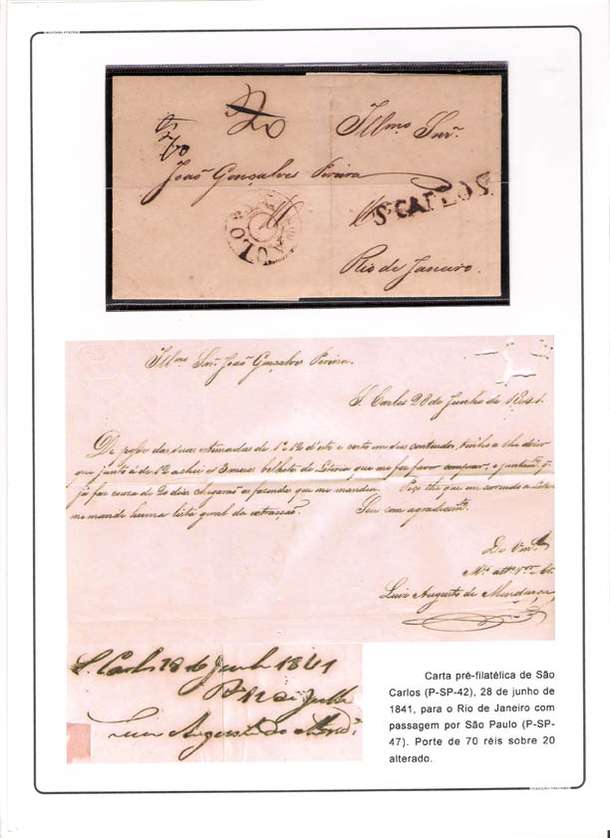 Illmo Snr.
João Gonçalves Pereira
S. CARLOS
Rio de Janeiro.
Illmo Snr. João Gonçalves Pereira.
S. Carlos 28 de Junho de 1841.
De posse das suas estimadas de 1º, 12 d'este e certo em seus contheudos, tenho a lhe dizer
que junto á de 12 achei os 3 meios bilhetes de Loteria que me fez favor comprar, e juntam.
já faz cerca de 20 dias chegarão as fazendas que me mandou. Peço lhe que em correndo a Loteria
me mande huma lista geral da extracção. Sou com
De Vmce
Luiz Augusto de
S. Carlos 28 de Junho 1841
Rª 12 de Julho
Luiz Augusto de
Carta pré-filatélica de São
Carlos (P-SP-42), 28 de junho de
1841, para o Rio de Janeiro com
passagem por São Paulo (P-SP-
47). Porte de 70 réis sobre 20
alterado.